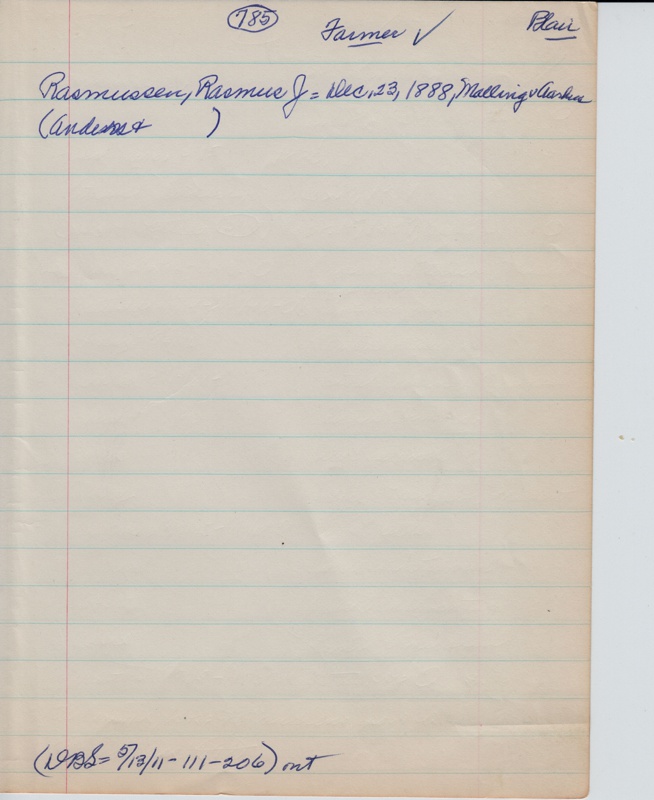 785 Farmer ✓ Blair
Rasmussen, Rasmus J = Dec, 23, 1888, Malling v Aarhus
(Anders + )
(DBS = 5/13/11 - 111 - 206) ont